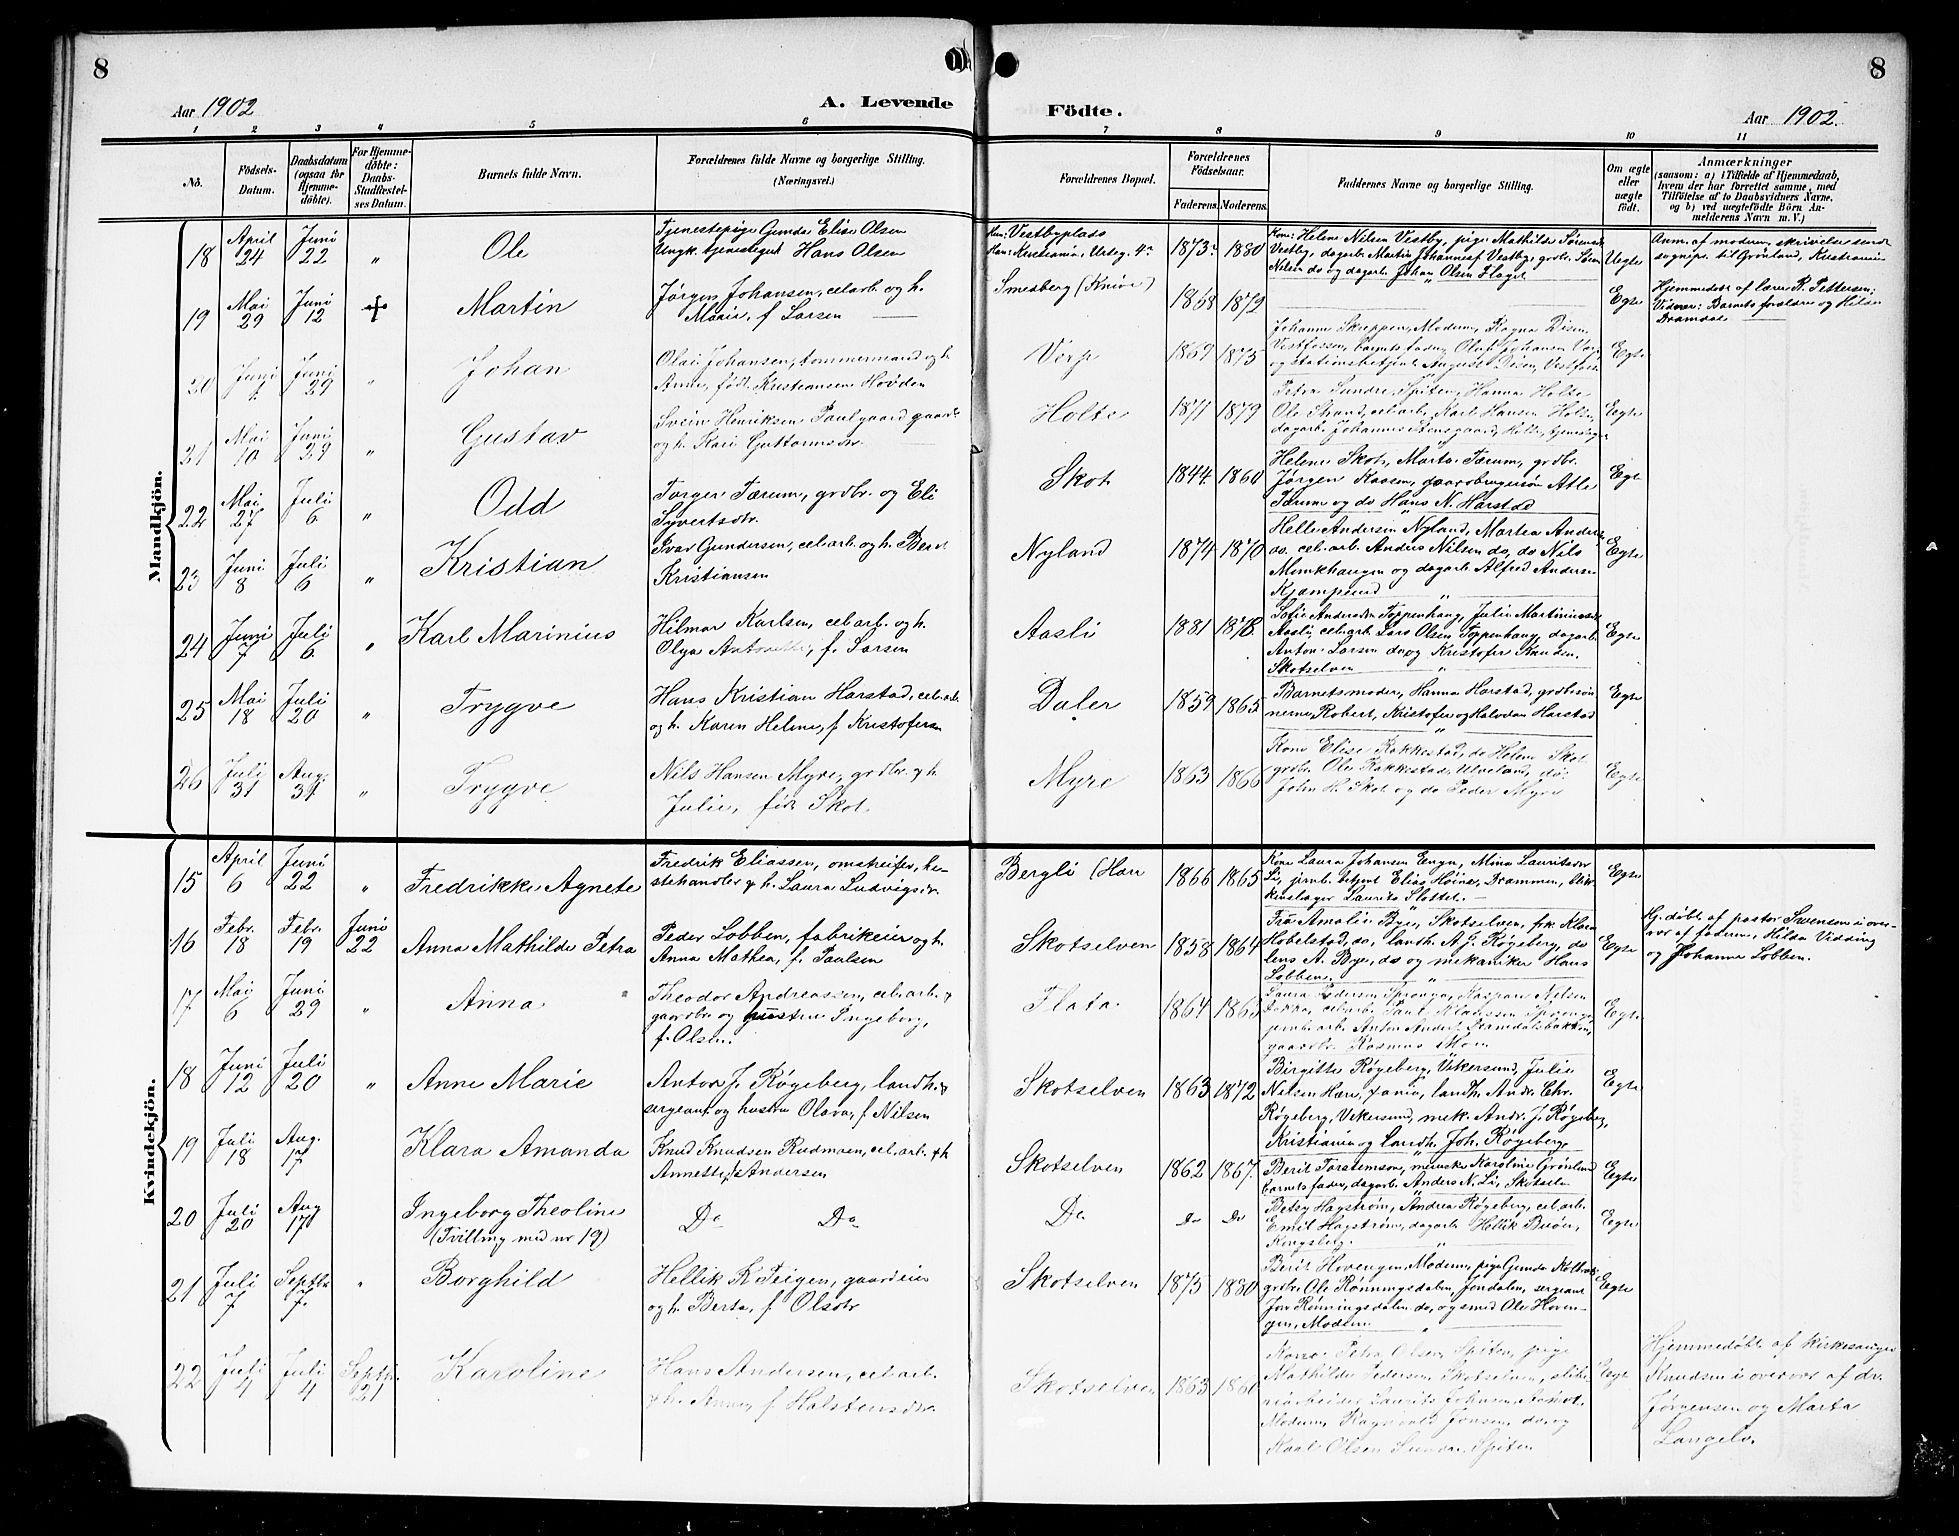 8
8
Aar 1902
A. Levende
Födte.
Aar 1902.
1 2 3 4 5 6 7 8 9 10 11
No.
Födsels-
Datum.
Daabsdatum
(ogsaa for
Hjemme-
döbte).
For Hjemme-
döbte:
Daabs-
Stadfæstel-
ses Datum.
Barnets fulde Navn.
Forældrenes fulde Navne og borgerlige Stilling.
(Næringsvei.)
Forældrenes Bopæl.
Forældrenes
Födselsaar.
Faderens. Moderens.
Faddernes Navne og borgerlige Stilling.
Om ægte
eller
uægte
födt.
Anmærkninger
(saasom: a) i Tilfælde af Hjemmedaab,
hvem der har forrettet samme, med
Tilföielse af to Daabsvidners Navne,
og b) ved uægtefödte Börn An-
melderens Navn m. V.)
Mandkjön.
18 April 24 Juni 22 " Ole
Tjenestepige Gunda Elise Olsen
Ungk. tjenestegut Hans Olsen
Vestbyplads
1873 1880
Helene Nilsen Vestby, pige Mathilde
Vestby, dagarb. Martin Johannesf Vestby, grdbr.
Nilsen do og dagarb. Johan Olsen
Uegte
Anm. af moderen, skrivelse sendt
sognepr. til Grönland, Kristiania
19 Mai 29 Juni 12 Martin
Jørgen Johansen, cel.arb. og h.
Marie, f Larsen
Smedberg
1868 1872
Egte
Hjemmedøbt af lærer R. Pettersen;
Vidner: Barnets forældre og
20 Juni 1 Juni 29 " Johan
Olai Johansen, tømmermand og h.
Anne, født Kristiansen Hovden
Verp
1869 1875
Johanne Skreppen, Modum, Ragna Disen,
Vestfossen, barnets fader, Oluf Johansen
og stationsbetjent August Disen, Vestfossen
Egte
21 Mai 10 Juni 29 " Gustav
Svein Henriksen Paulgaard
og h. Kari Guttormsdtr.
Holte
1871 1879
Petra Sundre, Spiten, Hanna Holte
Ole Strand, cel.arb. Karl Hansen Holte,
dagarb. Johannes
Egte
22 Mai 27 Juli 6 " Odd
Torger Tærum, grdbr. og Eli
Syvertsdtr.
Skot
1844 1860
Helene Skot, Marta Tærum, grdbr.
Jørgen Kaasen, gaardbrugersøn Atle
Tærum og do Hans N. Harstad
Egte
23 Juni 8 Juli 6 " Kristian
Ivar Gundersen, cel.arb. og h. Berit
Kristiansen
Nyland
1874 1870
Helle Andersen Nyland, Martea
do, cel.arb. Anders Nilsen do, do Nils
Munkhaugen og dagarb. Alfred Andersen
Kjæmperud
Egte
24 Juni 7 Juli 6 " Karl Marinius
Hilmar Karlsen, cel.arb. og h.
Olga, f. Larsen
Aasli
1881 1878
Sofie Andersdtr Toppenhaug, Julie
Aasli, cel.arb. Lars Olsen Toppenhaug, dagarb.
Anton Larsen do og Kristofer Knudsen
Skotselven
Egte
25 Mai 18 Juli 20 " Trygve
Hans Kristian Harstad, cel.arb.
og h. Karen Helene, f Kristofersen
Daler
1859 1865
Barnets moder, Hanna Harstad, grdbr.søn-
nerne Robert, Kristofer og Halvdan Harstad
Egte
26 Juli 31 Aug. 31 " Trygve
Nils Hansen Myre, grdbr. og h.
Julie, født Skot.
Myre
1863 1866
Kone Elise Kokkestad, do Helene Skot
grdbr. Ole Kokkestad, Ulveland, do
John H. Skot og do Peder Myre
Egte
Kvindekjön.
15 April 6 Juni 22 " Fredrikke Agnete
Fredrik Eliassen, omstreifer, he-
stehandler & h. Laura Ludvigsdtr
Bergli
1866 1865
Kone Laura Johansen Enga, Mina Lauritsdtr
Li, jernb. betjent Elias Høine, Drammen,
Laurits Slottet.
Egte
16 Febr. 18 Febr. 19 Juni 22 Anna Mathilde Petra
Peder Lobben, fabrikeier og h.
Anna Mathea, f. Paulsen
Skotselven
1858 1864
Fru Amalie Bye, Skotselven, frk Klara
Hobelstad, do, landh. A. J. Røgeberg, do
Jens A. Bye, do og mekaniker Hans
Lobben
Egte
Hj. døbt af pastor Svensen i over-
vær af faderen, Hilda Vidding
og Johanne Lobben.
17 Mai 6 Juni 29 " Anna
Theodor Andreassen, cel.arb. &
gaardbr og hustru Ingeborg,
f. Olsen.
Flata
1864 1863
Laura Pedersen Sprønga, Kaspara Nilsen
Egte
18 Juni 12 Juli 20 " Anne Marie
Anton J. Røgeberg, landh. &
sergeant og hustru Olava, f Nilsen
Skotselven
1863 1872
Birgitte Røgeberg, Vikersund, Julie
Nilsen Hære, landh. Andr. Chr.
Røgeberg, Vikersund, mek. Andr. J. Røgeberg,
Kristiania og Landh. Joh. Røgeberg
Egte
19 Juli 18 Aug. 17 Klara Amanda
Knud Knudsen Rudmoen, cel.arb. & h
Annette, f Andersen
Skotselven
1862 1867
Berit Torstensen, Karoline Grønlund
barnets fader, dagarb. Anders N. Li, Skotselv
Egte
20 Juli 20 Aug 17 Ingeborg Theoline
(Tvilling med nr 19)
Do Do
Do
Do Do
Betsy Hagstrøm, Andrea Røgeberg, cel.arb.
Emil Hagstrøm, dagarb. Hellik Buøen,
Kongsberg.
Egte
21 Juli 7 Septbr 7. " Borghild
Hellik K Teigen, gaardeier
og h. Berta, f. Olsdtr
Skotselven
1875 1880
Berit Hovengen, Modum, pige Gunda
grdbr. Ole Rønningsdalen, Jondalen, sergeant
Jon Rønningsdalen do, og smed Ole Hoven-
gen, Modum
Egte
22 Juli 4 Juli 4 Septbr. 21 Karoline
Hans Andersen, cel.arb.
& h. Anne, f Halstensdtr.
Skotselven
1863 1860
Kone Petra Olsen, Spiten, pige
Mathilde Pedersen, Skotselven,
arbeider Laurits Johnsen
Modum, Ragnvald Jonsen, do, og
Karl Olsen Sundre, Spiten
Egte
Hjemmedøbt af kirkesanger
Knudsen i overvær af dr.
Jørgensen og Marta
Langelv.